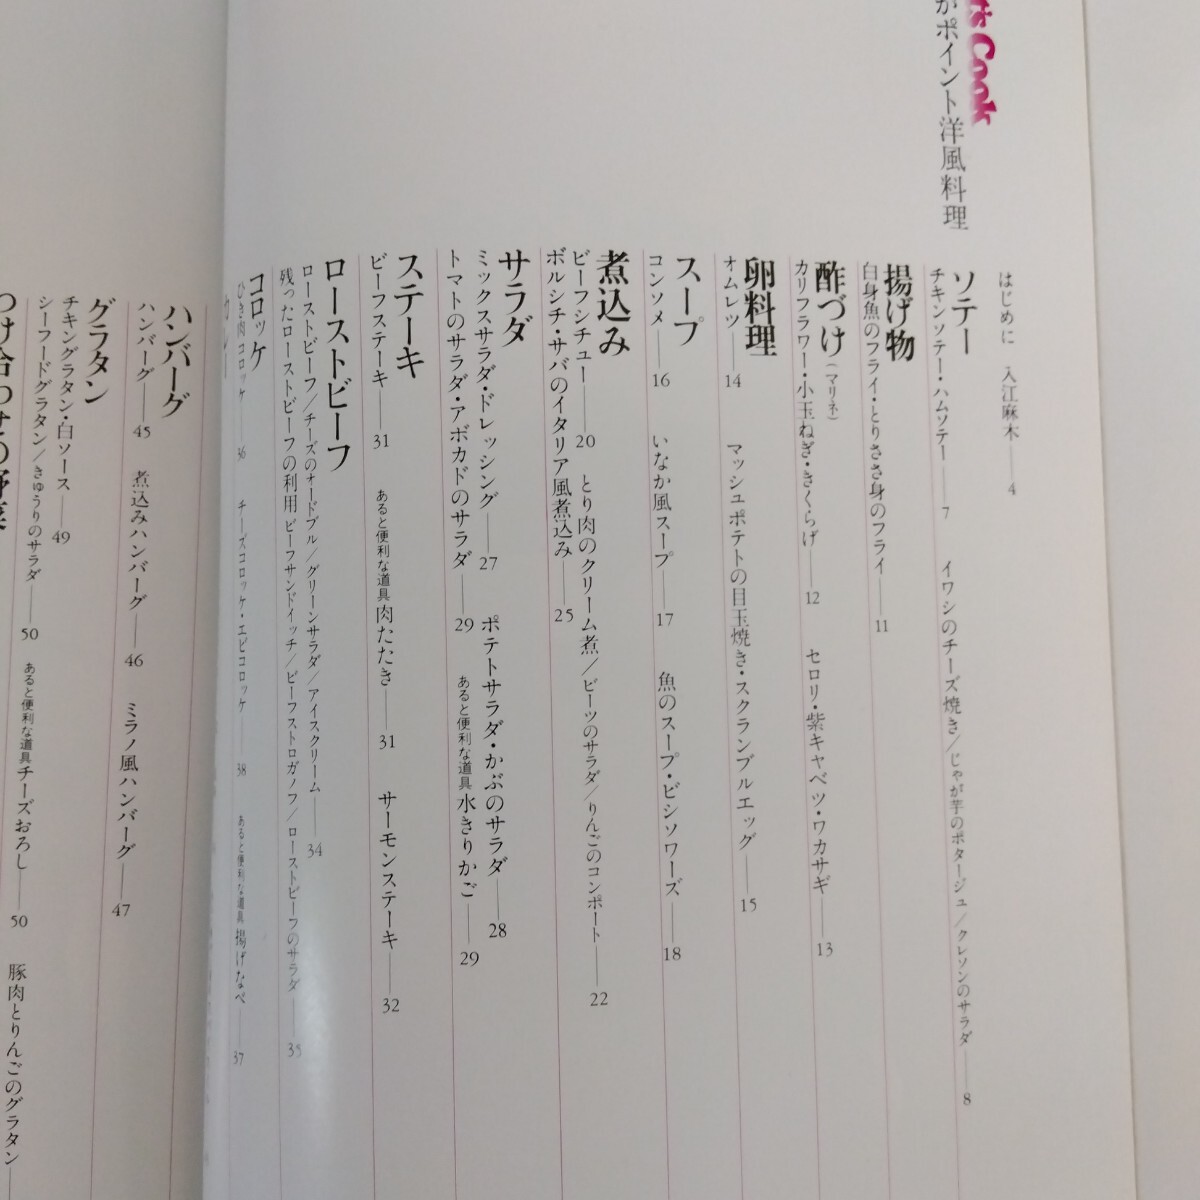 Cook
ポイント洋風料理
はじめに 入江麻木——4
ソテー
チキンソテー・ハムソテー——7 イワシのチーズ焼き/じゃが芋のポタージュ/クレソンのサラダ——8
揚げ物
白身魚のフライ・とりささ身のフライ——11
酢づけ(マリネ)
カリフラワー・小玉ねぎ・きくらげ——12 セロリ・紫キャベツ・ワカサギ——13
卵料理
オムレツ——14 マッシュポテトの目玉焼き・スクランブルエッグ——15
スープ
コンソメ——16 いなか風スープ——17 魚のスープ・ビシソワーズ——18
煮込み
ビーフシチュー——20 とり肉のクリーム煮/ビーツのサラダ/りんごのコンポート——22
ボルシチ・サバのイタリア風煮込み——25
サラダ
ミックスサラダ・ドレッシング——27 ポテトサラダ・かぶのサラダ——28
トマトのサラダ・アボカドのサラダ——29 あると便利な道具 水きりかご——29
ステーキ
ビーフステーキ——31 あると便利な道具 肉たたき——31 サーモンステーキ——32
ローストビーフ
ローストビーフ/チーズのオードブル/グリーンサラダ/アイスクリーム——34
残ったローストビーフの利用 ビーフサンドイッチ/ビーフストロガノフ/ローストビーフのサラダ——35
コロッケ
ひき肉コロッケ 36 チーズコロッケ・エビコロッケ——38 あると便利な道具 揚げなべ——37
カレー
ハンバーグ
ハンバーグ——45 煮込みハンバーグ——46 ミラノ風ハンバーグ——47
グラタン
チキングラタン・白ソース——49
シーフードグラタン/きゅうりのサラダ——50 あると便利な道具 チーズおろし——50 豚肉とりんごのグラタン——
つけ合わせの野菜